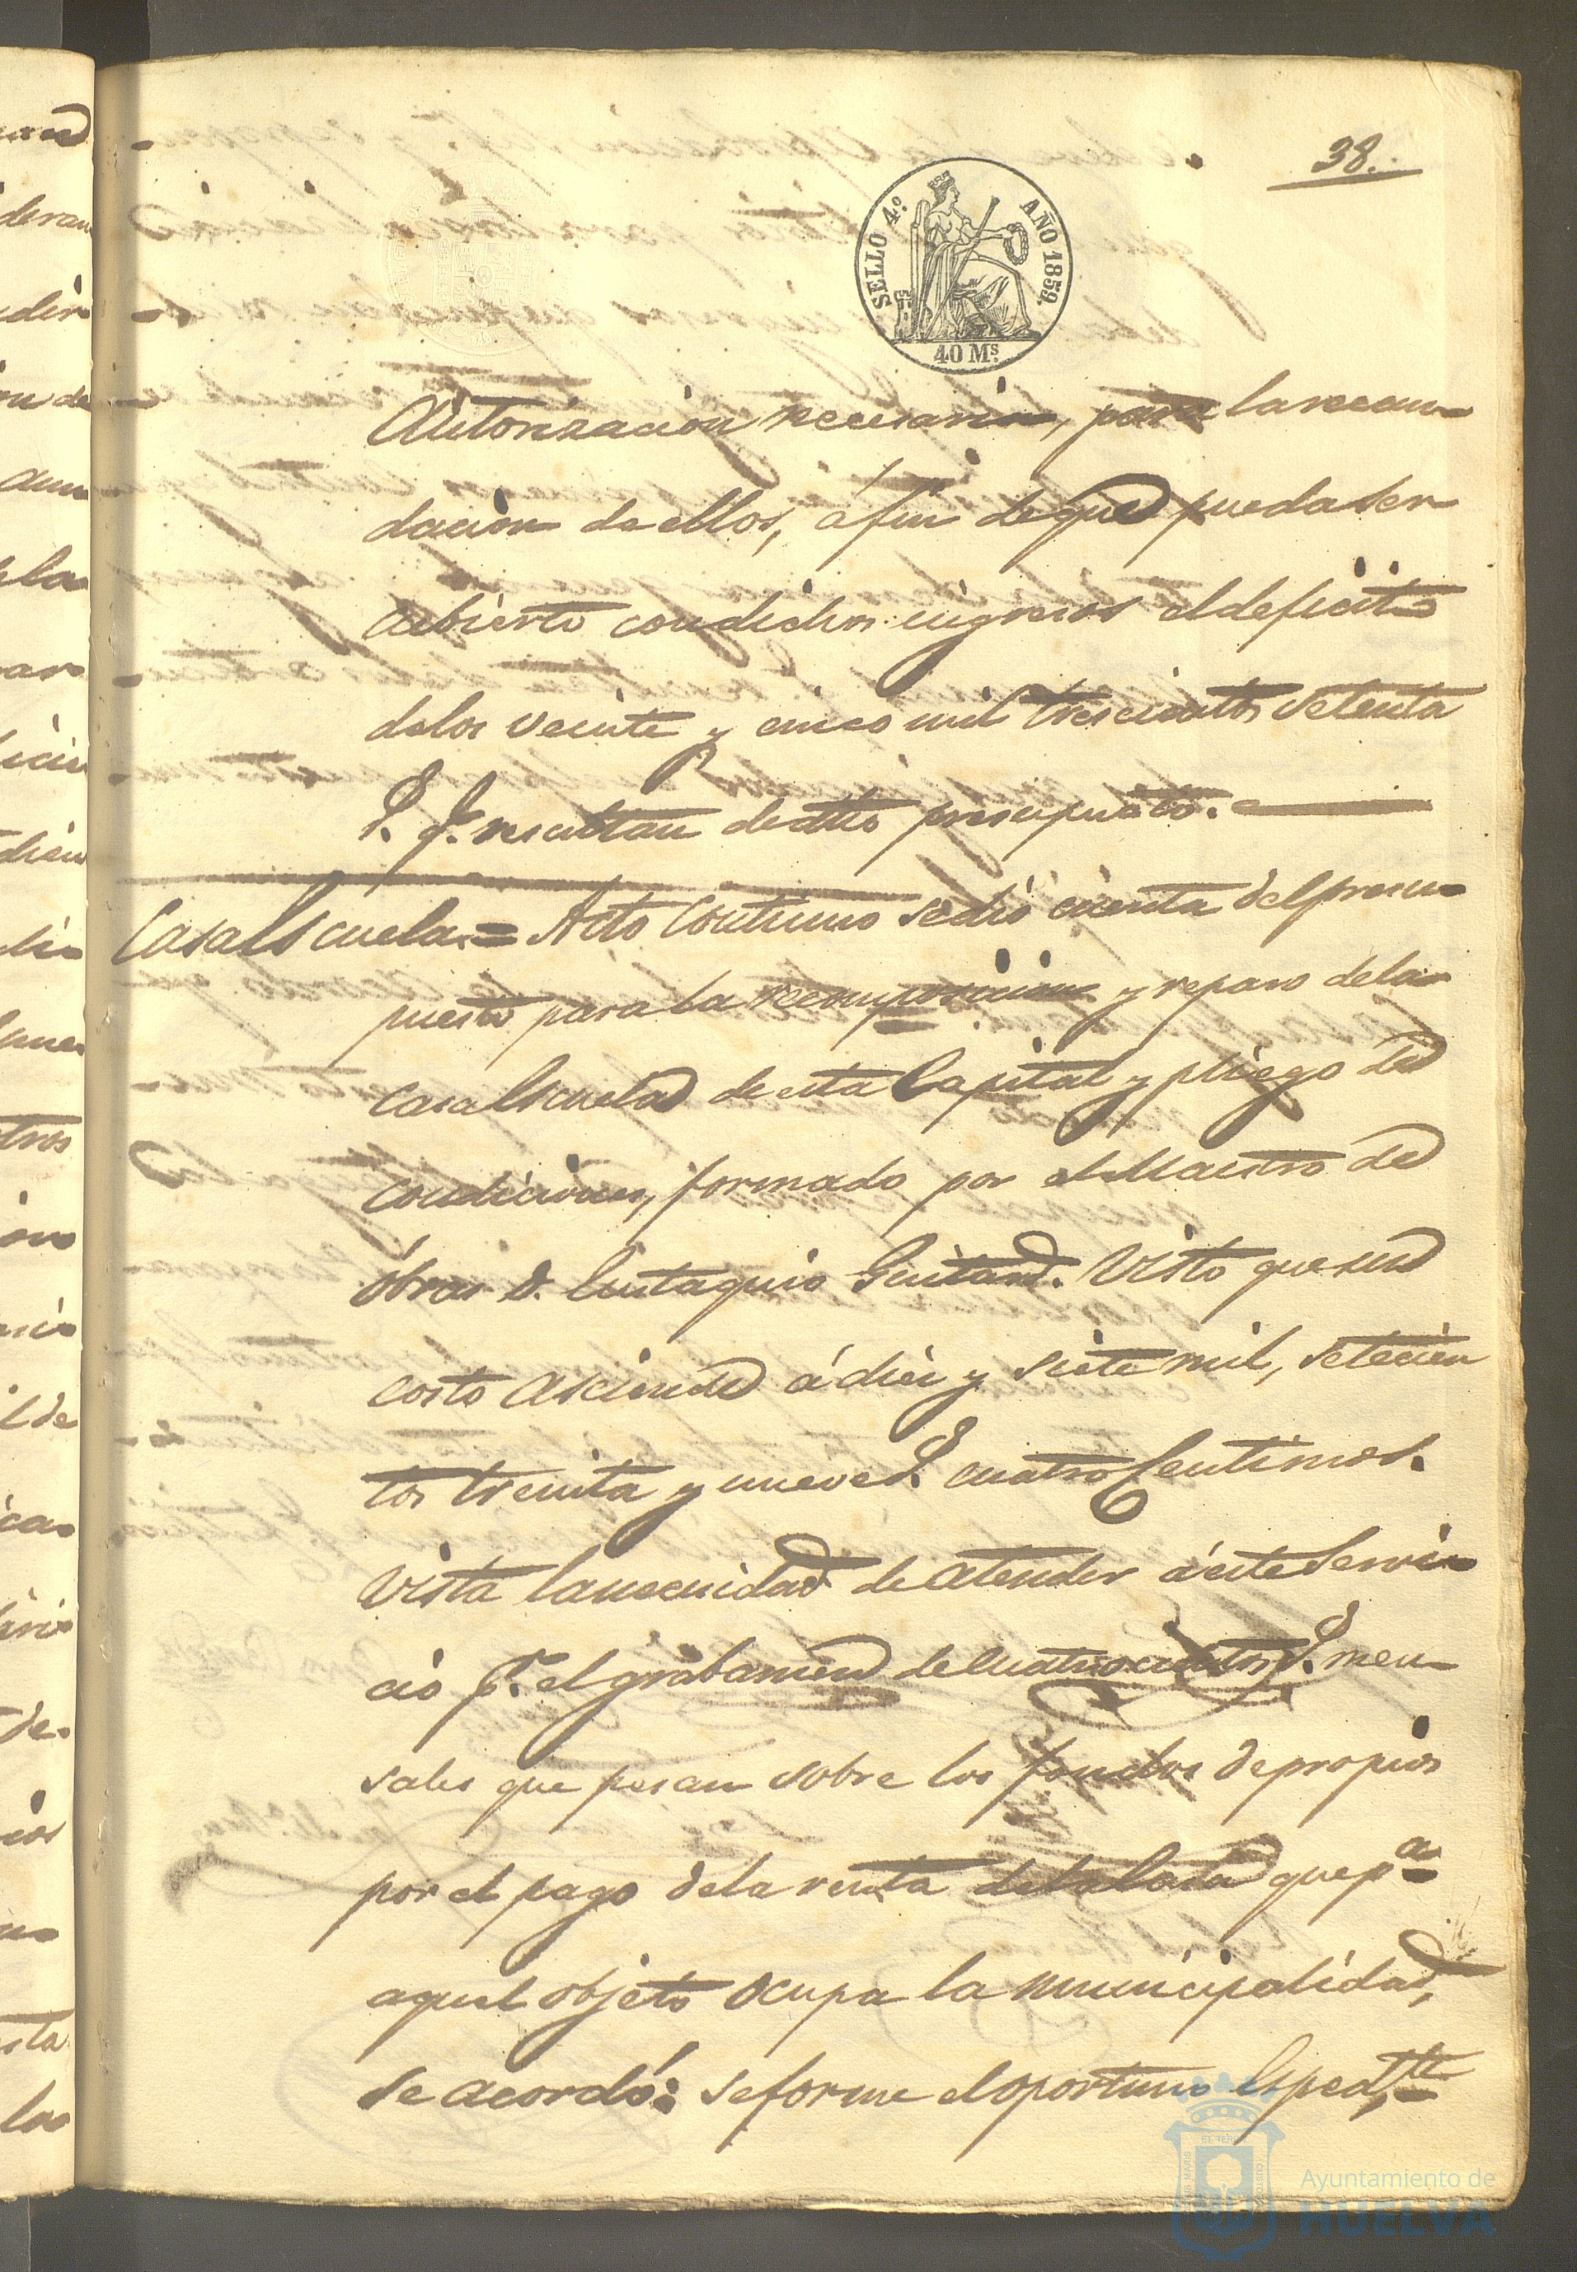 38.
SELLO 4.º AÑO 1859.
40 Ms.
Autorizacion necesaria, para la recau-
dacion de ellos, á fin de que pueda ser
cubierto con dichos ingresos el deficit
de los veinte y cinco mil trescientos setenta
r.s q.e resultan de dho presupuesto.
Casa Escuela.= Acto continuo se dió cuenta del presu-
puesto para la recomposicion y reparo de la
casa Escuela de esta Capital y pliego de
condiciones, formado por el Maestro de
óbras D. Eustaquio. Visto que su
costo asciende á diez y siete mil, setecien
tos treinta y nueve r.s cuatro Centimos.
Vista la necesidad de atender á este Servi-
cio p.r el grabamen de cuatrocientos r.s men-
sales que pesan sobre los fondos de propios
por el pago de la renta de la Casa que p.a
aquel objeto ocupa la municipalidad,
se acordó: se forme el oportuno Esped.te
Ayuntamiento de
HUELVA